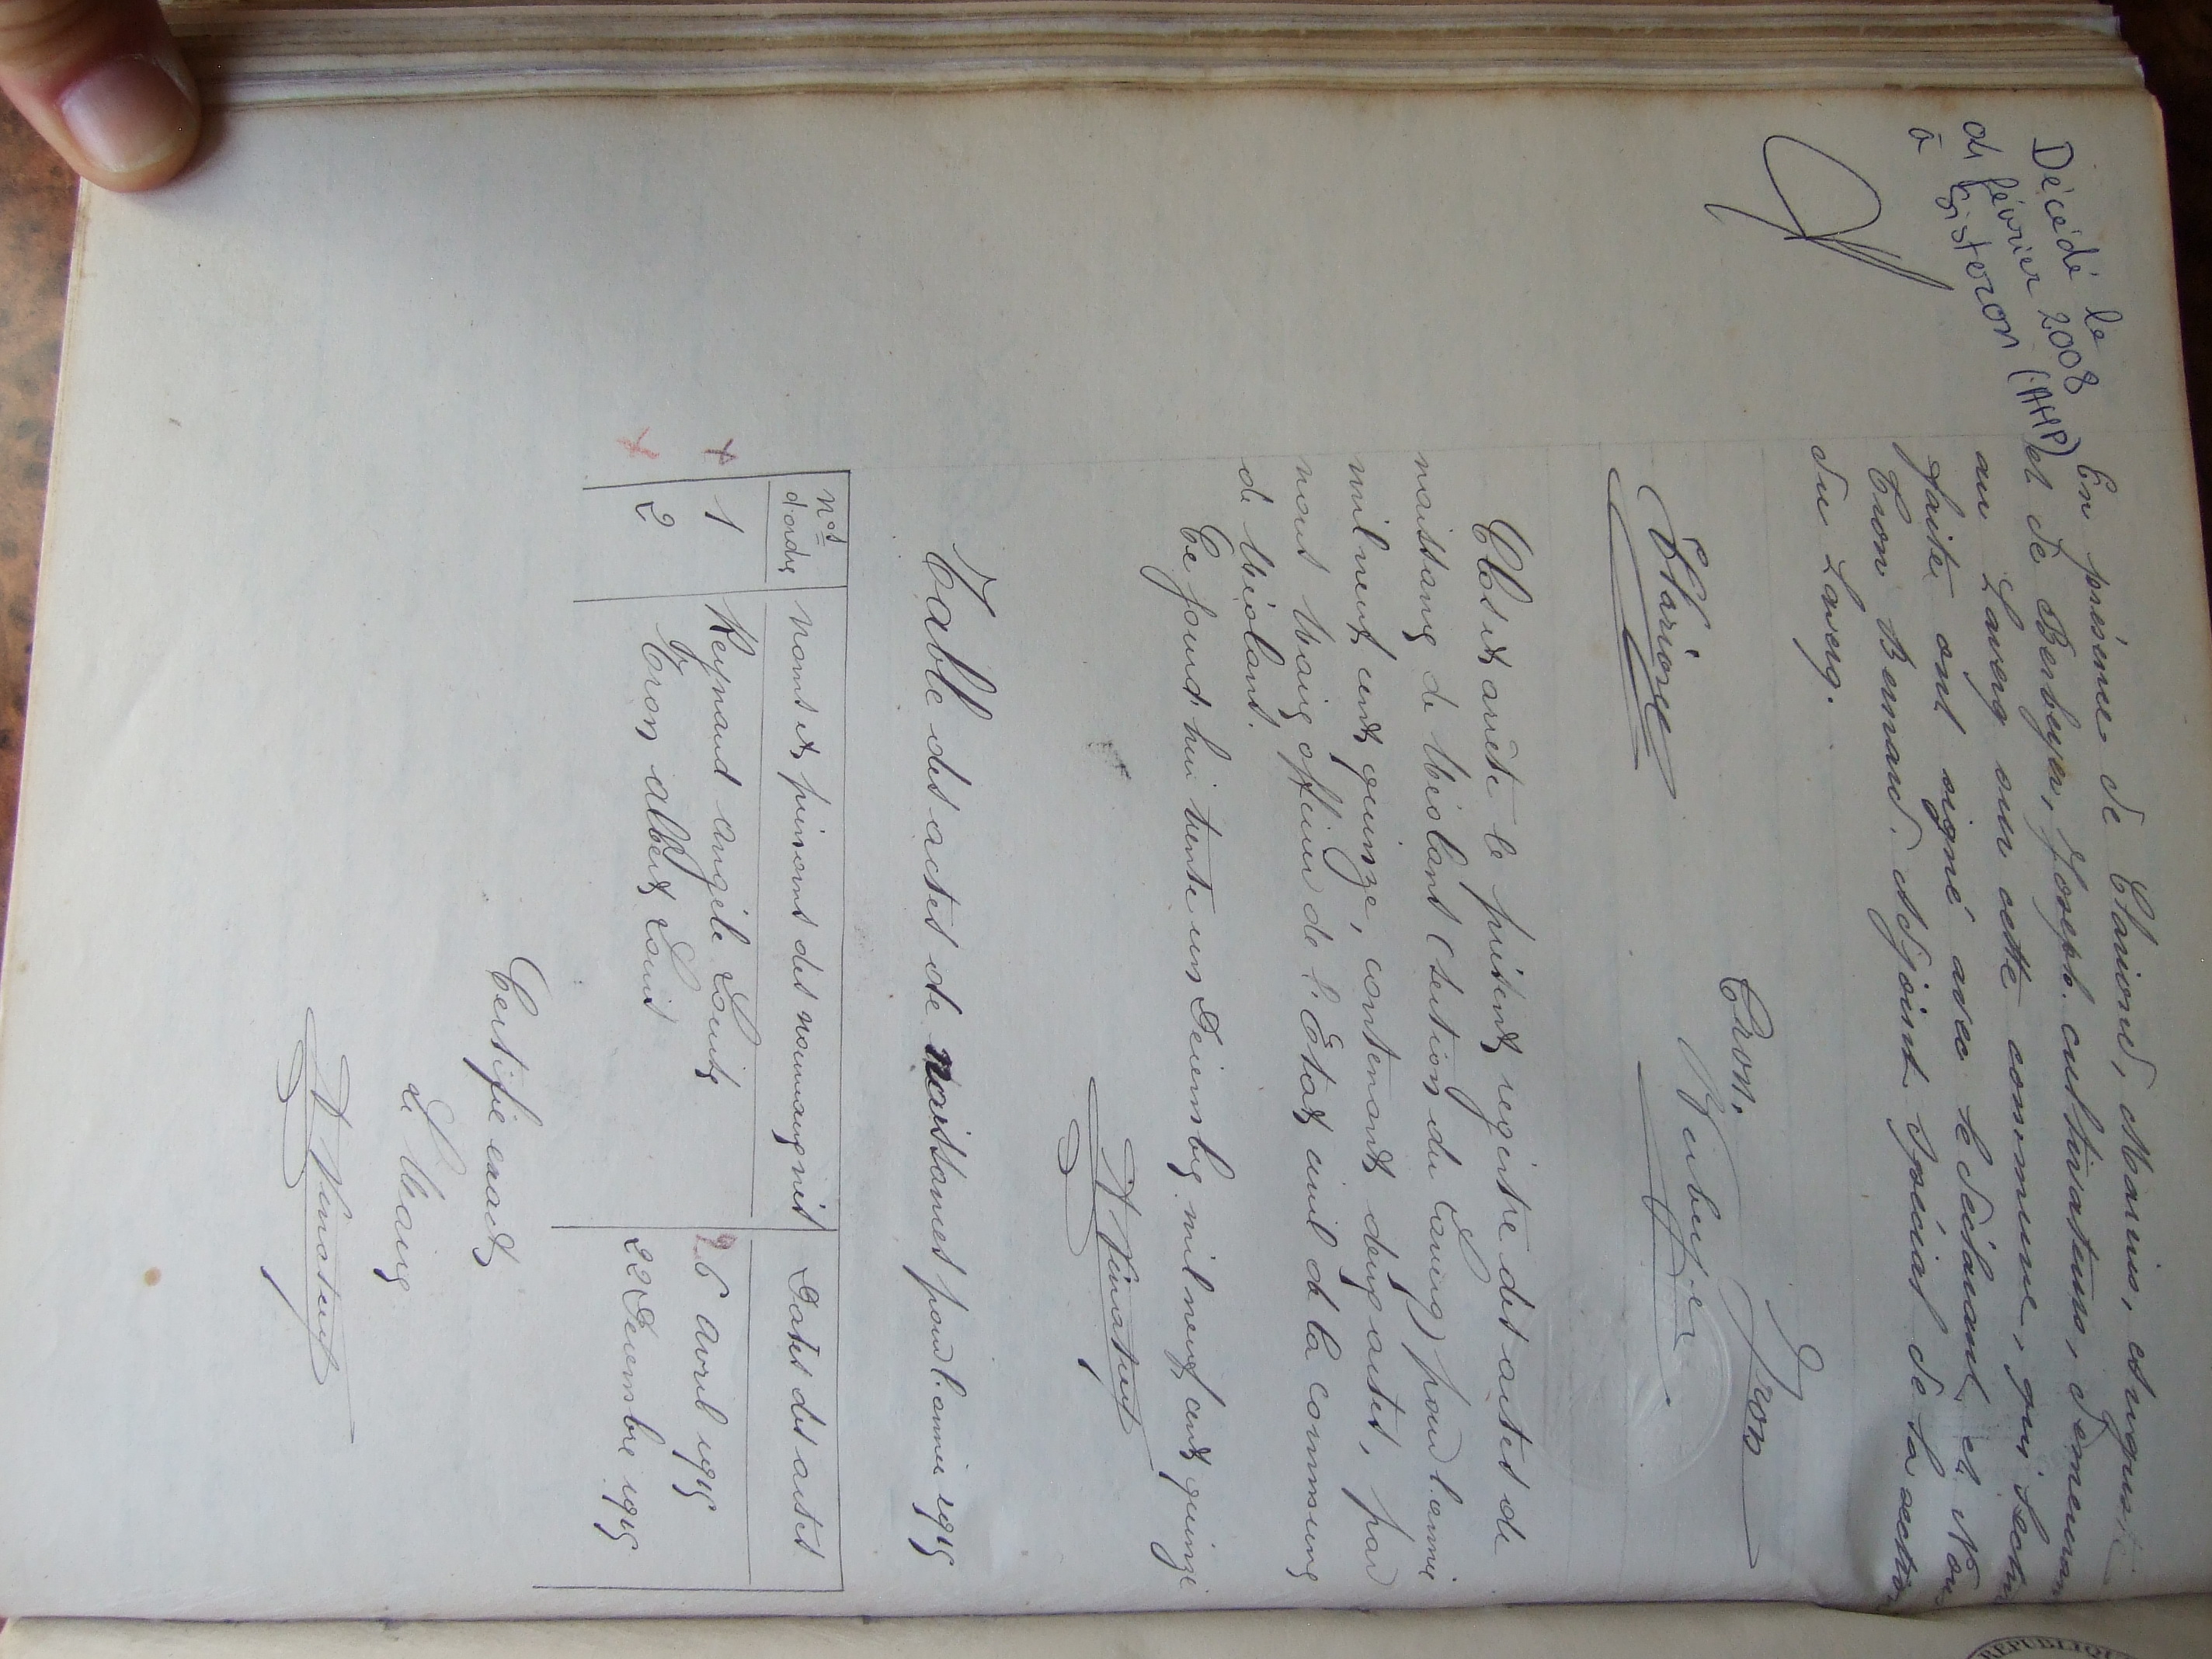 Décédé le
01 février 2008
à Sisteron (AHP)
En présence de Clariond, Marius, aubergiste
et de Berbeyer, Joseph, cultivateur, demeurant
au Laverq sur cette commune, qui lecture
faite ont signé avec le déclarant et Nous
Tron Bernard, adjoint spécial de la section
du Laverq.
Tron.
Tron
Clos et arrêté le présent registre des actes de
naissance de Méolans (section du Laverq) pour l'année
mil neuf cent quinze, contenant deux actes, par
nous Maire officier de l'Etat civil de la commune
de Méolans.
Ce jourd'hui trente un Décembre mil neuf cent quinze
Table des actes de naissances pour l'année 1915
Nos d'ordre noms et prénoms des nouveaux nés Dates des actes
1 Reynaud Angèle Louise 26 avril 1915
2 Tron Albert Louis 22 Décembre 1915
Certifié exact
Le Maire
REPUBLIQUE